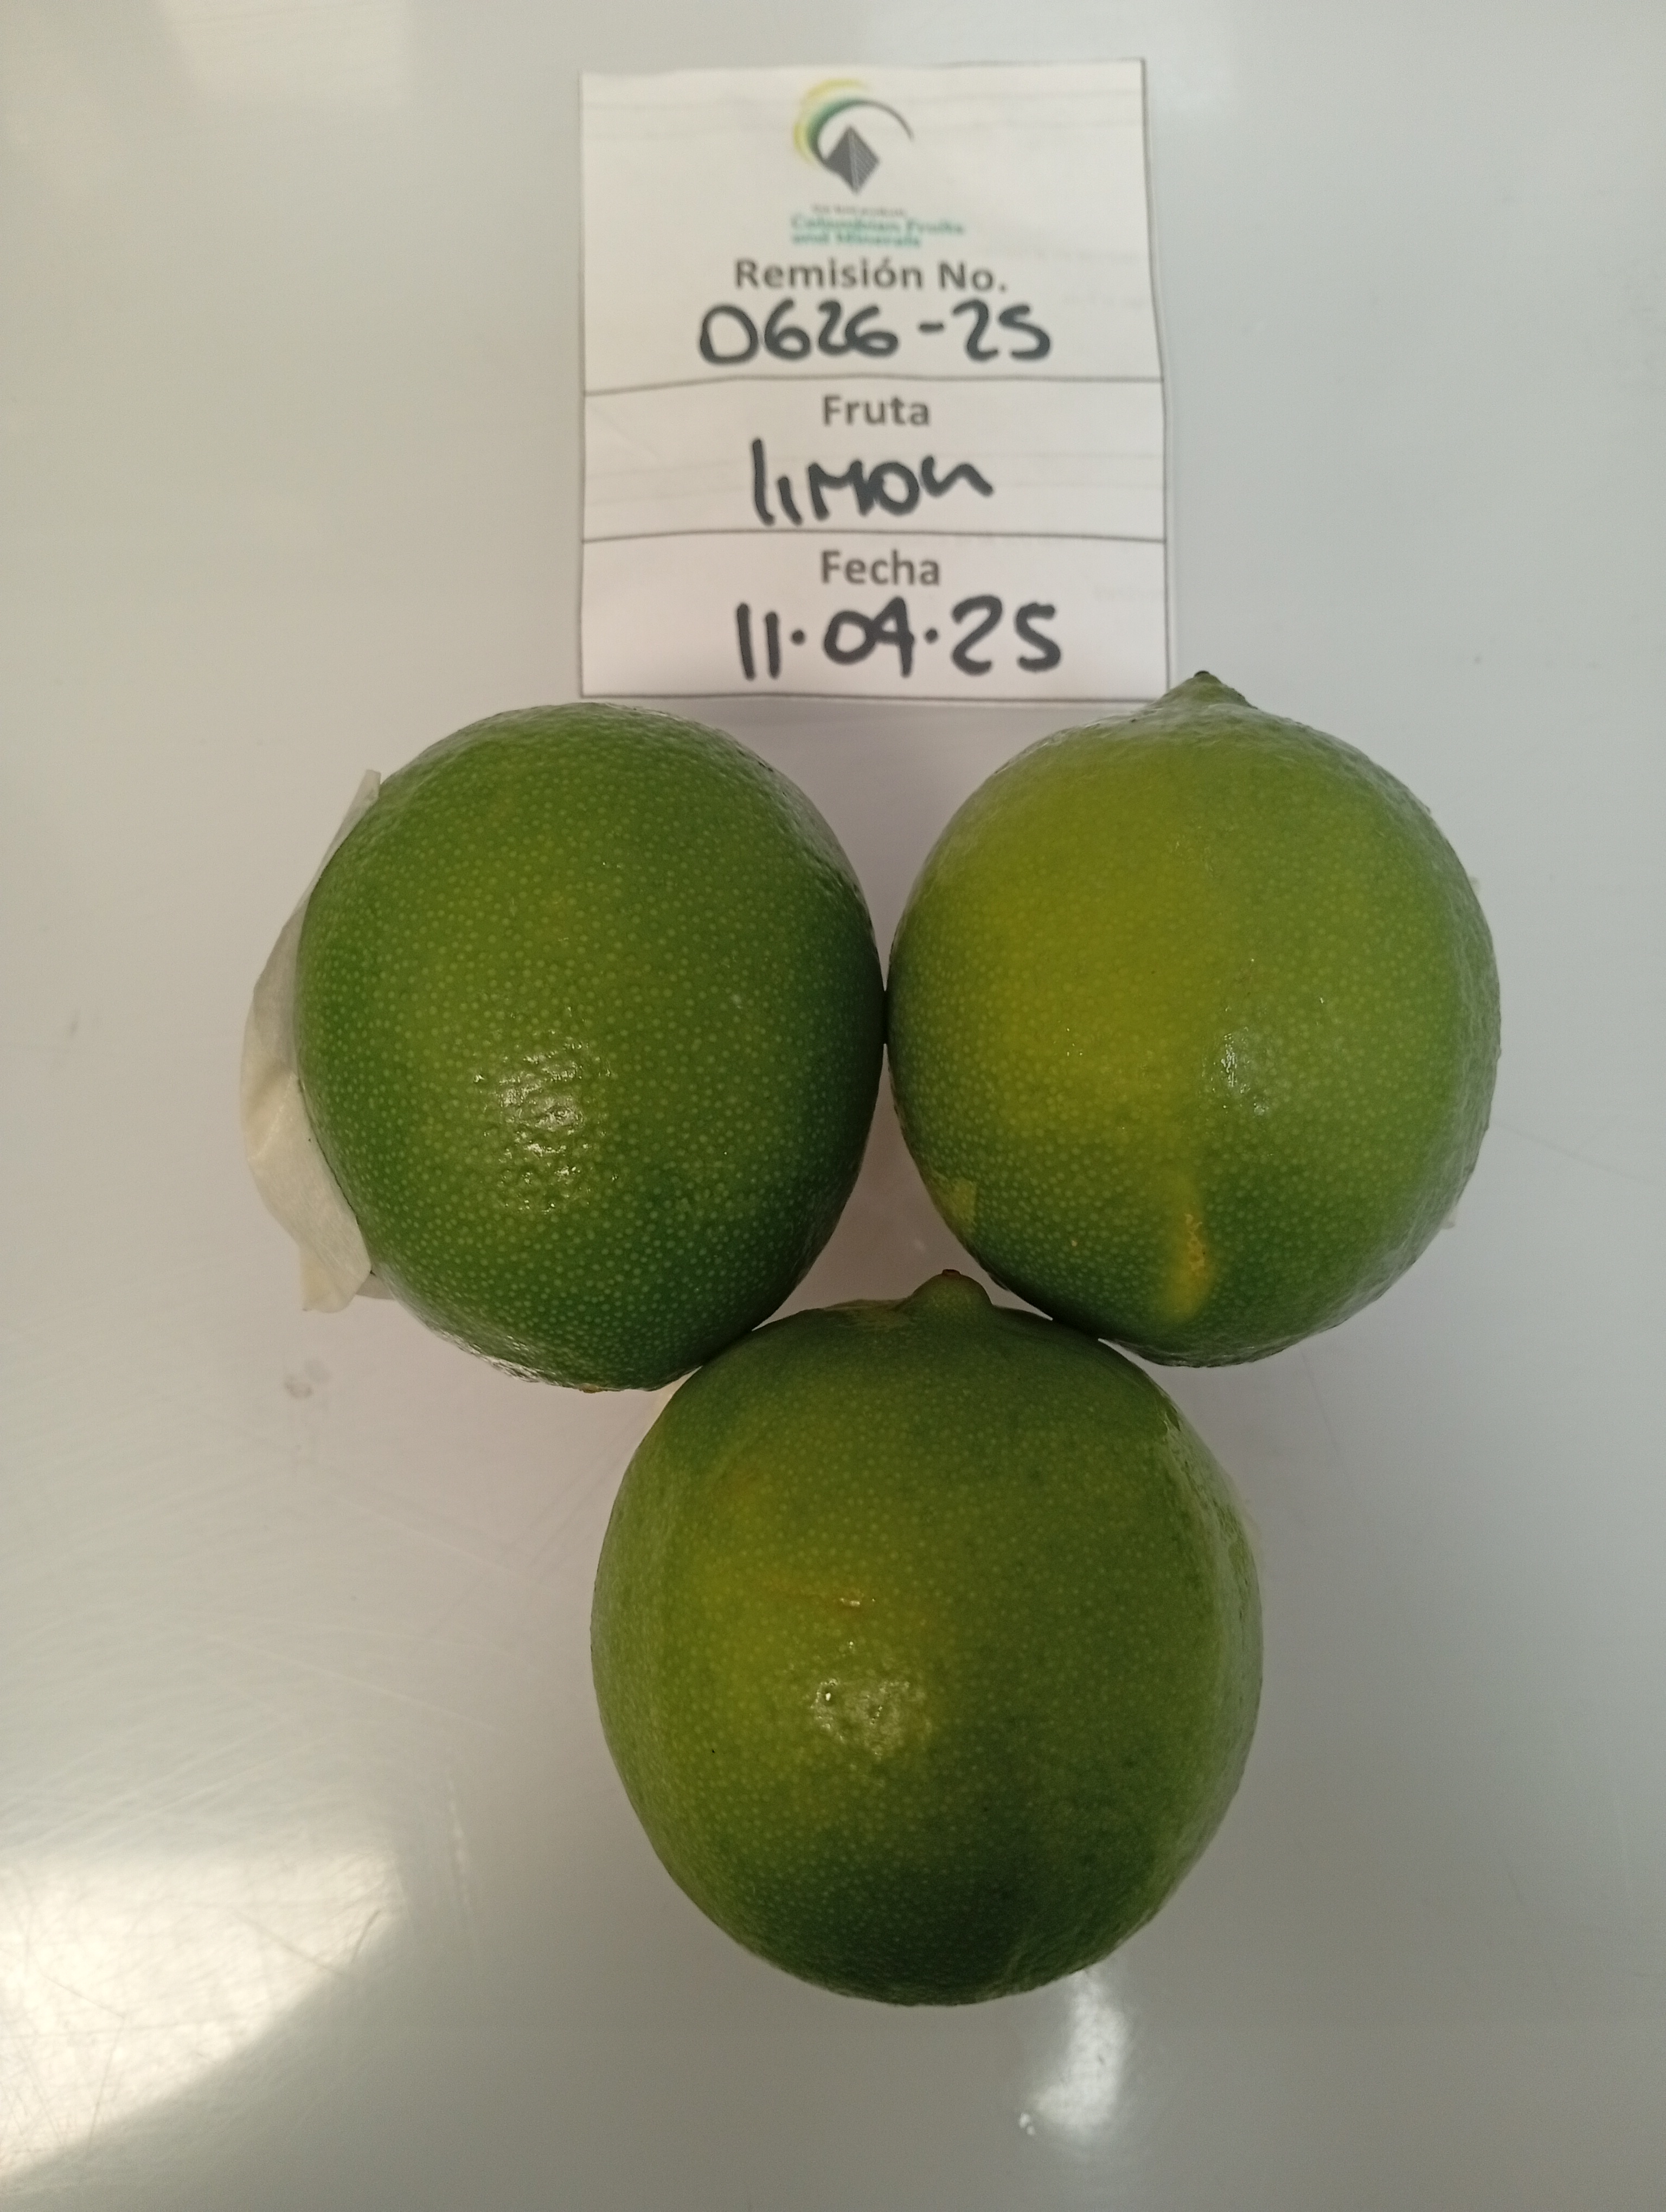 Colombian Fruits
and Minerals
Remisión No.
0626-25
Fruta
limon
Fecha
11.04.25